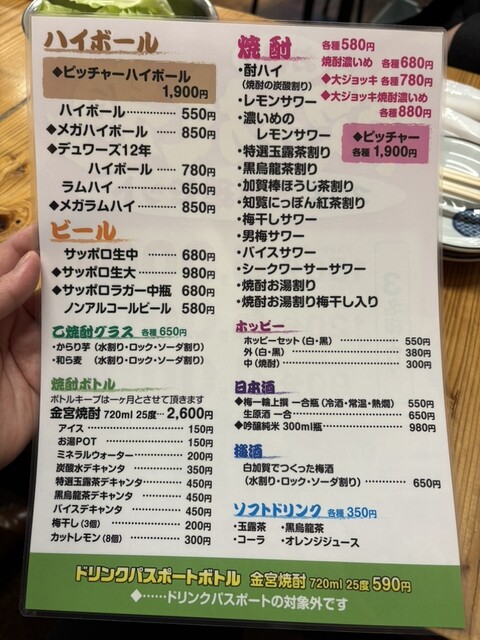 ハイボール
◆ピッチャーハイボール
1,900円
ハイボール………… 550円
◆メガハイボール …… 850円
◆デュワーズ12年
ハイボール …… 780円
ラムハイ ……………… 650円
◆メガラムハイ ……… 850円
ビール
サッポロ生中 …… 680円
◆サッポロ生大 …… 980円
◆サッポロラガー中瓶 680円
ノンアルコールビール 580円
乙焼酎グラス 各種650円
・からり芋 (水割り・ロック・ソーダ割り)
・和ら麦 (水割り・ロック・ソーダ割り)
焼酎ボトル
ボトルキープは一ヶ月とさせて頂きます
金宮焼酎 720ml 25度… 2,600円
アイス ……………… 150円
お湯POT ……………… 150円
ミネラルウォーター ……… 200円
炭酸水デキャンタ ……… 350円
特選玉露茶デキャンタ …… 450円
黒烏龍茶デキャンタ ……… 450円
バイスデキャンタ ……… 450円
梅干し(3個) ……………… 200円
カットレモン(8個) ……… 300円
焼酎 各種580円
焼酎濃いめ 各種680円
◆大ジョッキ 各種780円
◆大ジョッキ焼酎濃いめ
各種880円
◆ピッチャー
各種1,900円
・酎ハイ
(焼酎の炭酸割り)
・レモンサワー
・濃いめの
レモンサワー
・特選玉露茶割り
・黒烏龍茶割り
・加賀棒ほうじ茶割り
・知覧にっぽん紅茶割り
・梅干しサワー
・男梅サワー
・バイスサワー
・シークワーサーサワー
・焼酎お湯割り
・焼酎お湯割り梅干し入り
ホッピー
ホッピーセット(白・黒) ……… 550円
外(白・黒) ……………… 380円
中(焼酎) ……………… 300円
日本酒
◆梅一輪上撰 一合瓶(冷酒・常温・熱燗) 550円
生原酒 一合 ……………… 650円
◆吟醸純米 300ml瓶 ……… 980円
梅酒
白加賀でつくった梅酒
(水割り・ロック・ソーダ割り) ……… 650円
ソフトドリンク 各種350円
・玉露茶 ・黒烏龍茶
・コーラ ・オレンジジュース
ドリンクパスポートボトル 金宮焼酎 720ml 25度 590円
◆……ドリンクパスポートの対象外です